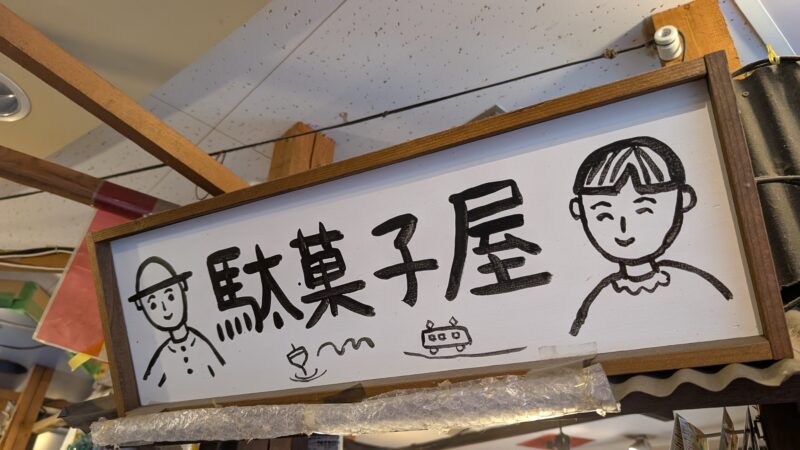 駄菓子屋